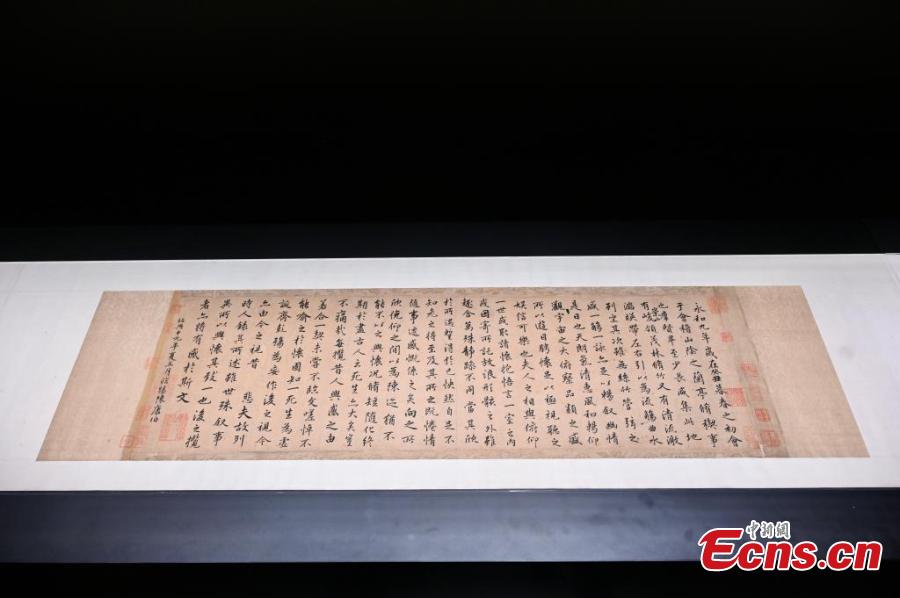 永和九年歲在癸丑暮春之初會
于會稽山陰之蘭亭脩禊事
也群賢畢至少長咸集此地
有崇山峻領茂林脩竹又有清流激
湍暎帶左右引以為流觴曲水
列坐其次雖無絲竹管弦之
盛一觴一詠亦足以暢叙幽情
是日也天朗氣清惠風和暢仰
觀宇宙之大俯察品類之盛
所以遊目騁懷足以極視聽之
娛信可樂也夫人之相與俯仰
一世或取諸懷抱悟言一室之內
或因寄所託放浪形骸之外雖
趣舍萬殊靜躁不同當其欣
於所遇蹔得於己怏然自足不
知老之將至及其所之既惓情
隨事遷感慨係之矣向之所
欣俛仰之間以為陳迹猶不
能不以之興懷況脩短隨化終
期於盡古人云死生亦大矣豈
不痛哉每攬昔人興感之由
若合一契未嘗不臨文嗟悼不
能喻之於懷固知一死生為虛
誕齊彭殤為妄作後之視今
亦由今之視昔悲夫故列
時人錄其所述雖世殊叙事
異所以興懷其致一也後之攬
者亦將有感於斯文
中新網
Ecns.cn